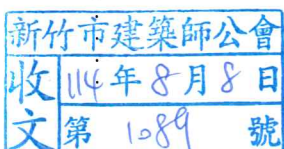 新竹市建築師公會
收文
114年8月8日
第1089號